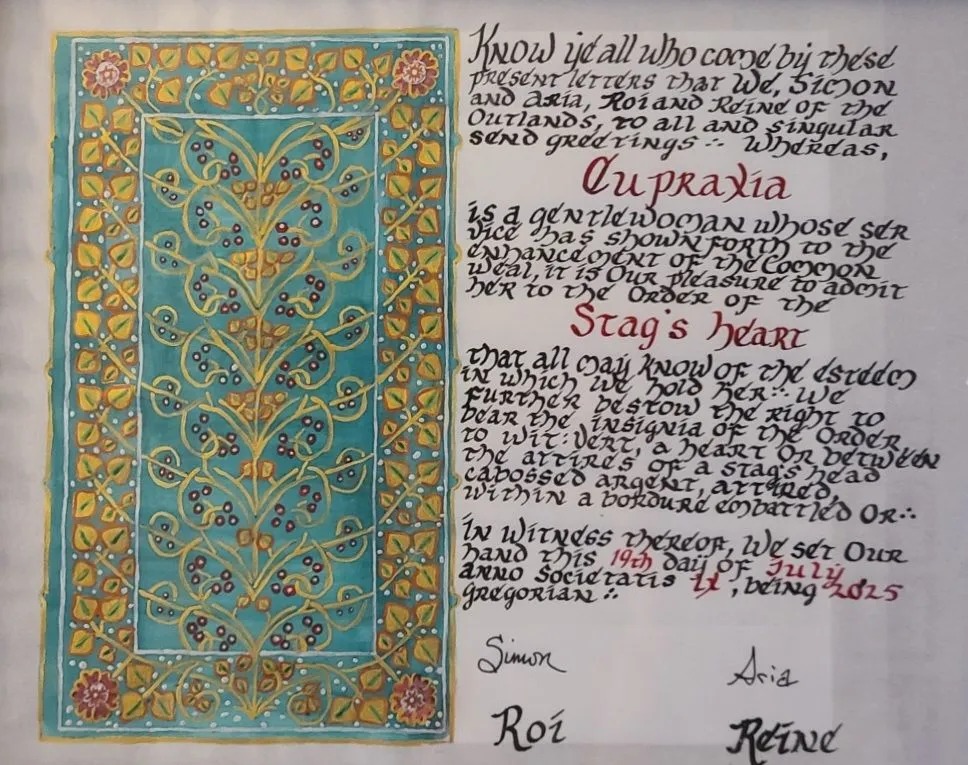 Know ye all who come by these
present letters that We, Simon
and Aria, Roi and Reine of the
Outlands, to all and singular
send greetings ∴ Whereas,
Eupraxia
is a gentlewoman whose ser
vice has shown forth to the
enhancement of the Common
Weal, it is Our pleasure to admit
her to the Order of the
Stag's Heart
that all may know of the esteem
in which we hold her ∴ We
further bestow the right to
bear the insignia of the Order
to wit: Vert, a heart Or between
the attires of a stag's head
cabossed argent, attired,
within a bordure embattled Or ∴
In witness thereof, We set Our
hand this 19th day of July
anno Societatis LX, being 2025
gregorian ∴
Simon Aria
Roi Reine